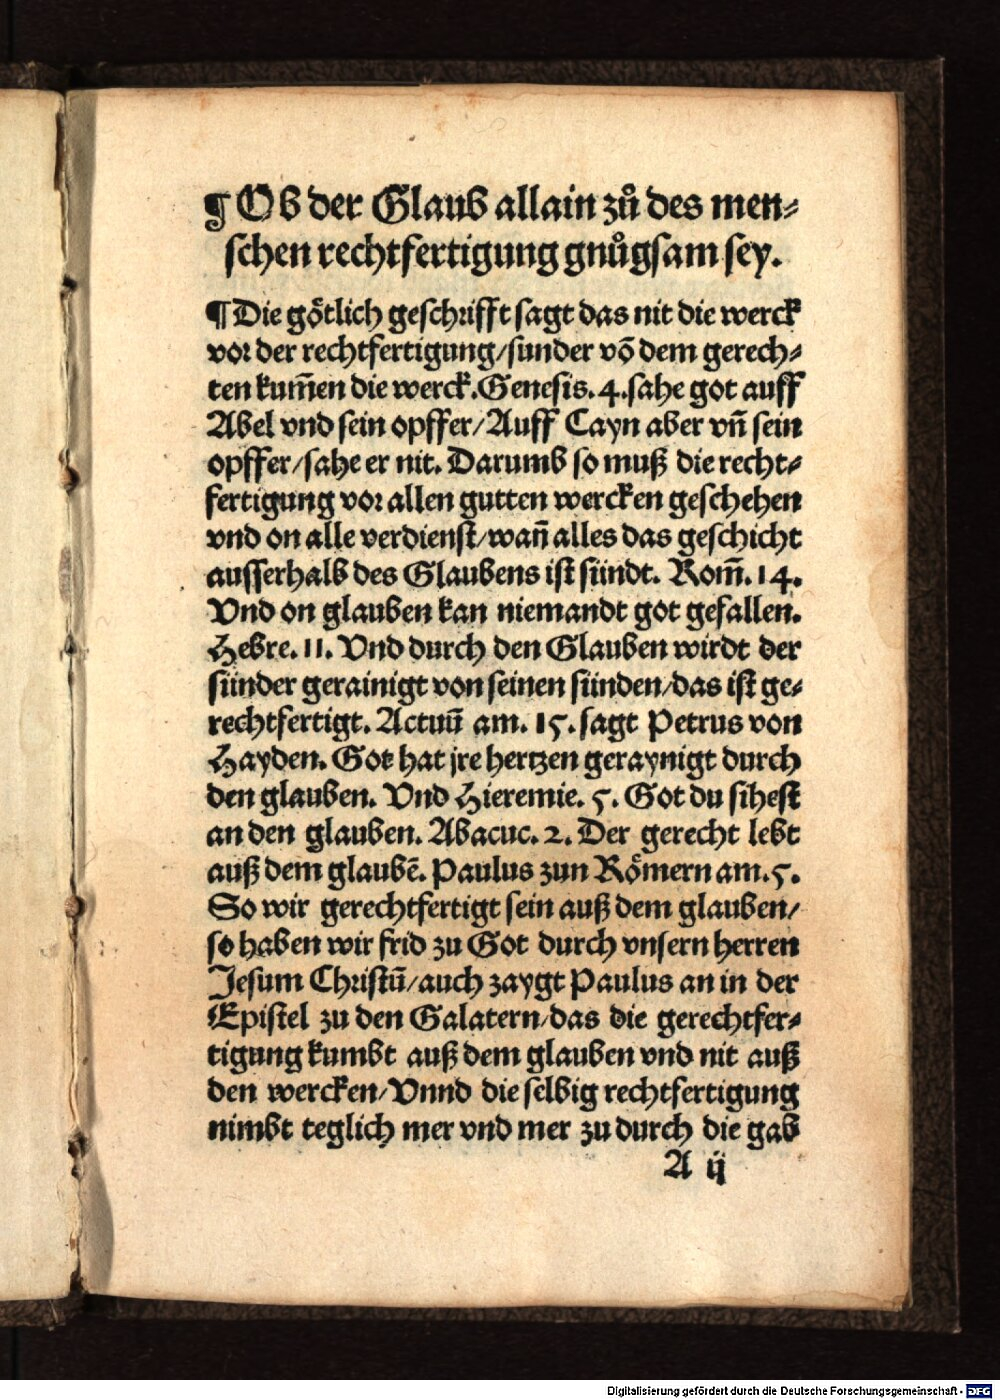 ¶ Ob der Glaub allain zů des men⸗
schen rechtfertigung gnůgsam sey.
¶ Die goͤtlich geschrifft sagt das nit die werck
vor der rechtfertigung/sunder vō dem gerech⸗
ten kum̄en die werck. Genesis. 4. sahe got auff
Abel vnd sein opffer/Auff Cayn aber vn̄ sein
opffer/sahe er nit. Darumb so muß die recht⸗
fertigung vor allen gutten wercken geschehen
vnd on alle verdienst/wan̄ alles das geschicht
ausserhalb des Glaubens ist sündt. Rom̄. 14.
Vnd on glauben kan niemandt got gefallen.
Hebre. 11. Vnd durch den Glauben wirdt der
sünder gerainigt von seinen sünden/das ist ge⸗
rechtfertigt. Actuū am. 15. sagt Petrus von
Hayden. Got hat jre hertzen geraynigt durch
den glauben. Vnd Hieremie. 5. Got du sihest
an den glauben. Abacuc. 2. Der gerecht lebt
auß dem glaubē. Paulus zun Roͤmern am. 5.
So wir gerechtfertigt sein auß dem glauben/
so haben wir frid zu Got durch vnsern herren
Jesum Christū/auch zaygt Paulus an in der
Epistel zu den Galatern/das die gerechtfer⸗
tigung kumbt auß dem glauben vnd nit auß
den wercken/Vnnd die selbig rechtfertigung
nimbt teglich mer vnd mer zu durch die gab
A ij
Digitalisierung gefördert durch die Deutsche Forschungsgemeinschaft - DFG